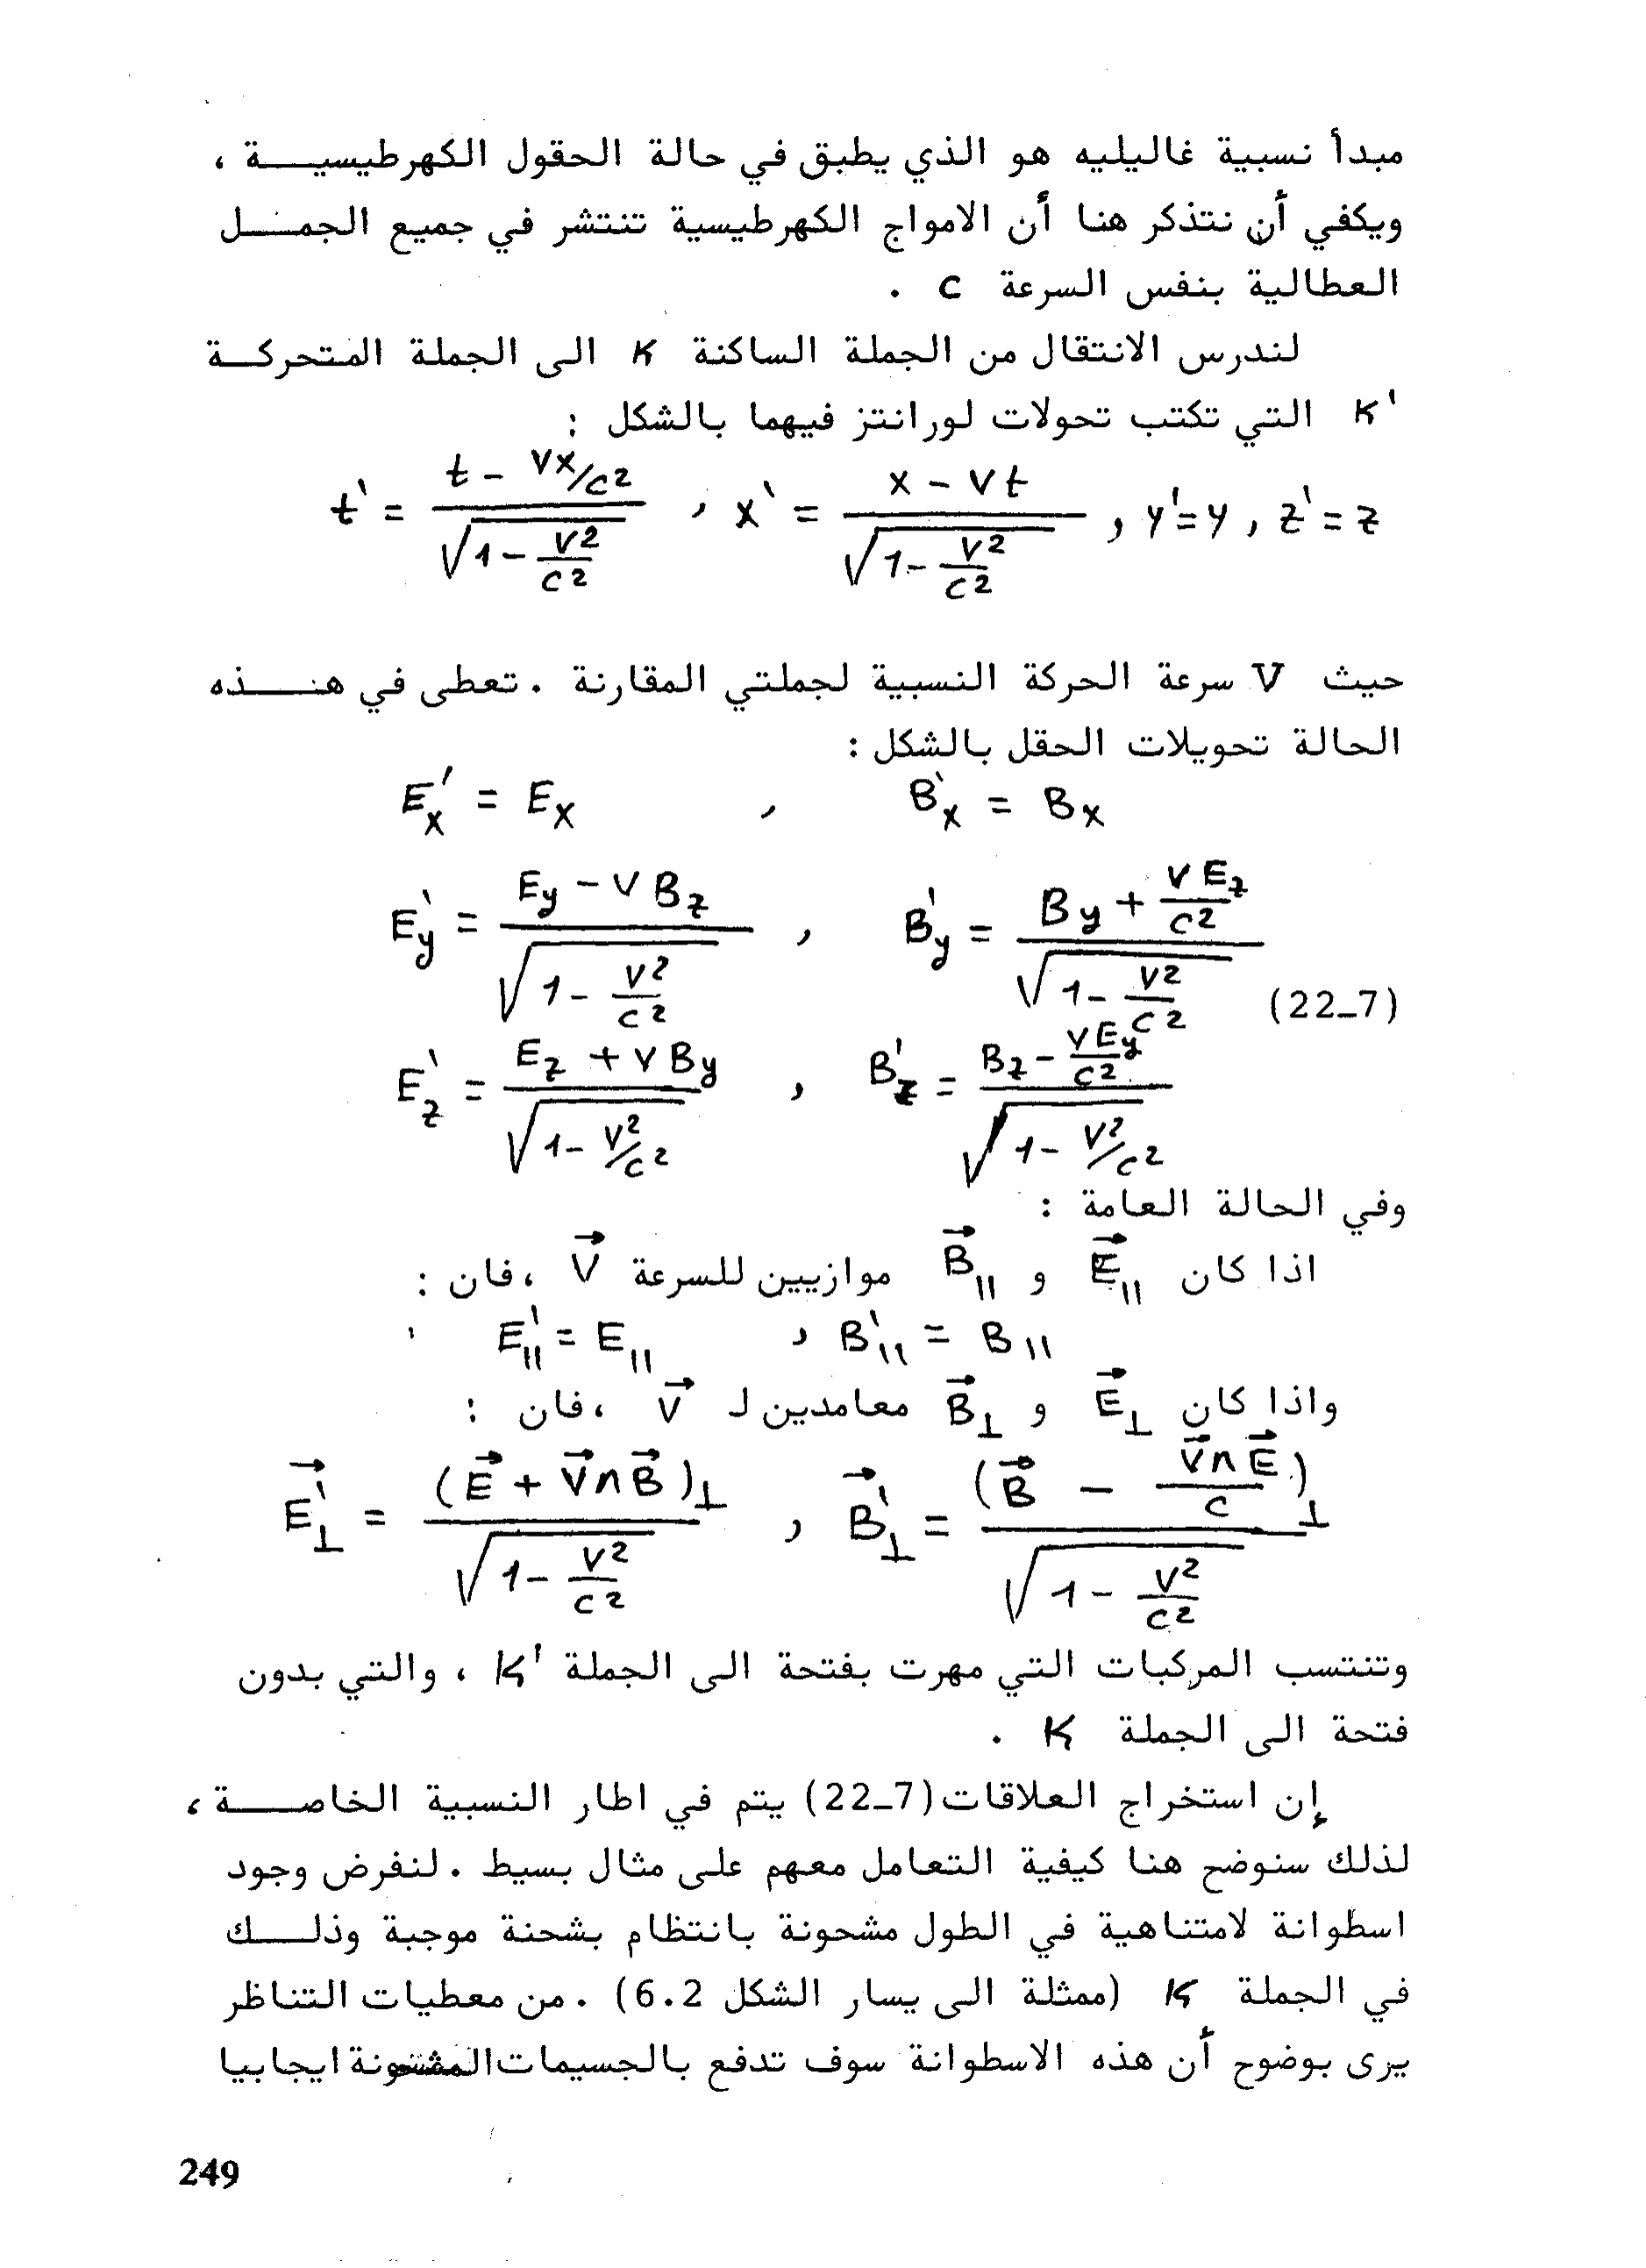 مبدأ نسبية غاليليه هو الذي يطبق في حالة الحقول الكهرطيسية ،
ويكفي أن نتذكر هنا أن الامواج الكهرطيسية تنتشر في جميع الجمل
العطالية بنفس السرعة c .
لندرس الانتقال من الجملة الساكنة K الى الجملة المتحركة
K' التي تكتب تحولات لورانتز فيهما بالشكل :
t' = (t - vx/c²) / √(1 - v²/c²) , x' = (x - vt) / √(1 - v²/c²) , y' = y , z' = z
حيث V سرعة الحركة النسبية لجملتي المقارنة . تعطى في هذه
الحالة تحويلات الحقل بالشكل :
E'x = Ex , B'x = Bx
E'y = (Ey - vBz) / √(1 - v²/c²) , B'y = (By + vEz/c²) / √(1 - v²/c²)
(22_7)
E'z = (Ez + vBy) / √(1 - v²/c²) , B'z = (Bz - vEy/c²) / √(1 - v²/c²)
وفي الحالة العامة :
اذا كان E⃗∥ و B⃗∥ موازيين للسرعة V⃗ ،فان :
E'∥ = E∥ , B'∥ = B∥
واذا كان E⃗⊥ و B⃗⊥ معامدين لـ V⃗ ،فان :
E⃗'⊥ = (E⃗ + V⃗∧B⃗)⊥ / √(1 - v²/c²) , B⃗'⊥ = (B⃗ - V⃗∧E⃗/c)⊥ / √(1 - v²/c²)
وتنتسب المركبات التي مهرت بفتحة الى الجملة K' ، والتي بدون
فتحة الى الجملة K .
إن استخراج العلاقات (22_7) يتم في اطار النسبية الخاصة ،
لذلك سنوضح هنا كيفية التعامل معهم على مثال بسيط . لنفرض وجود
اسطوانة لامتناهية في الطول مشحونة بانتظام بشحنة موجبة وذلك
في الجملة K (ممثلة الى يسار الشكل 6.2) . من معطيات التناظر
يرى بوضوح أن هذه الاسطوانة سوف تدفع بالجسيمات المشحونة ايجابيا
249